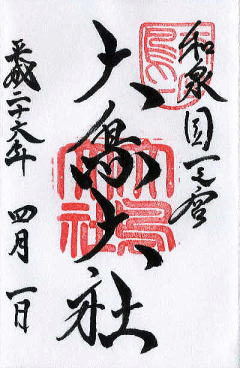 和泉國一之宮
大鳥大社
平成二十六年 四月 一日
大鳥大社